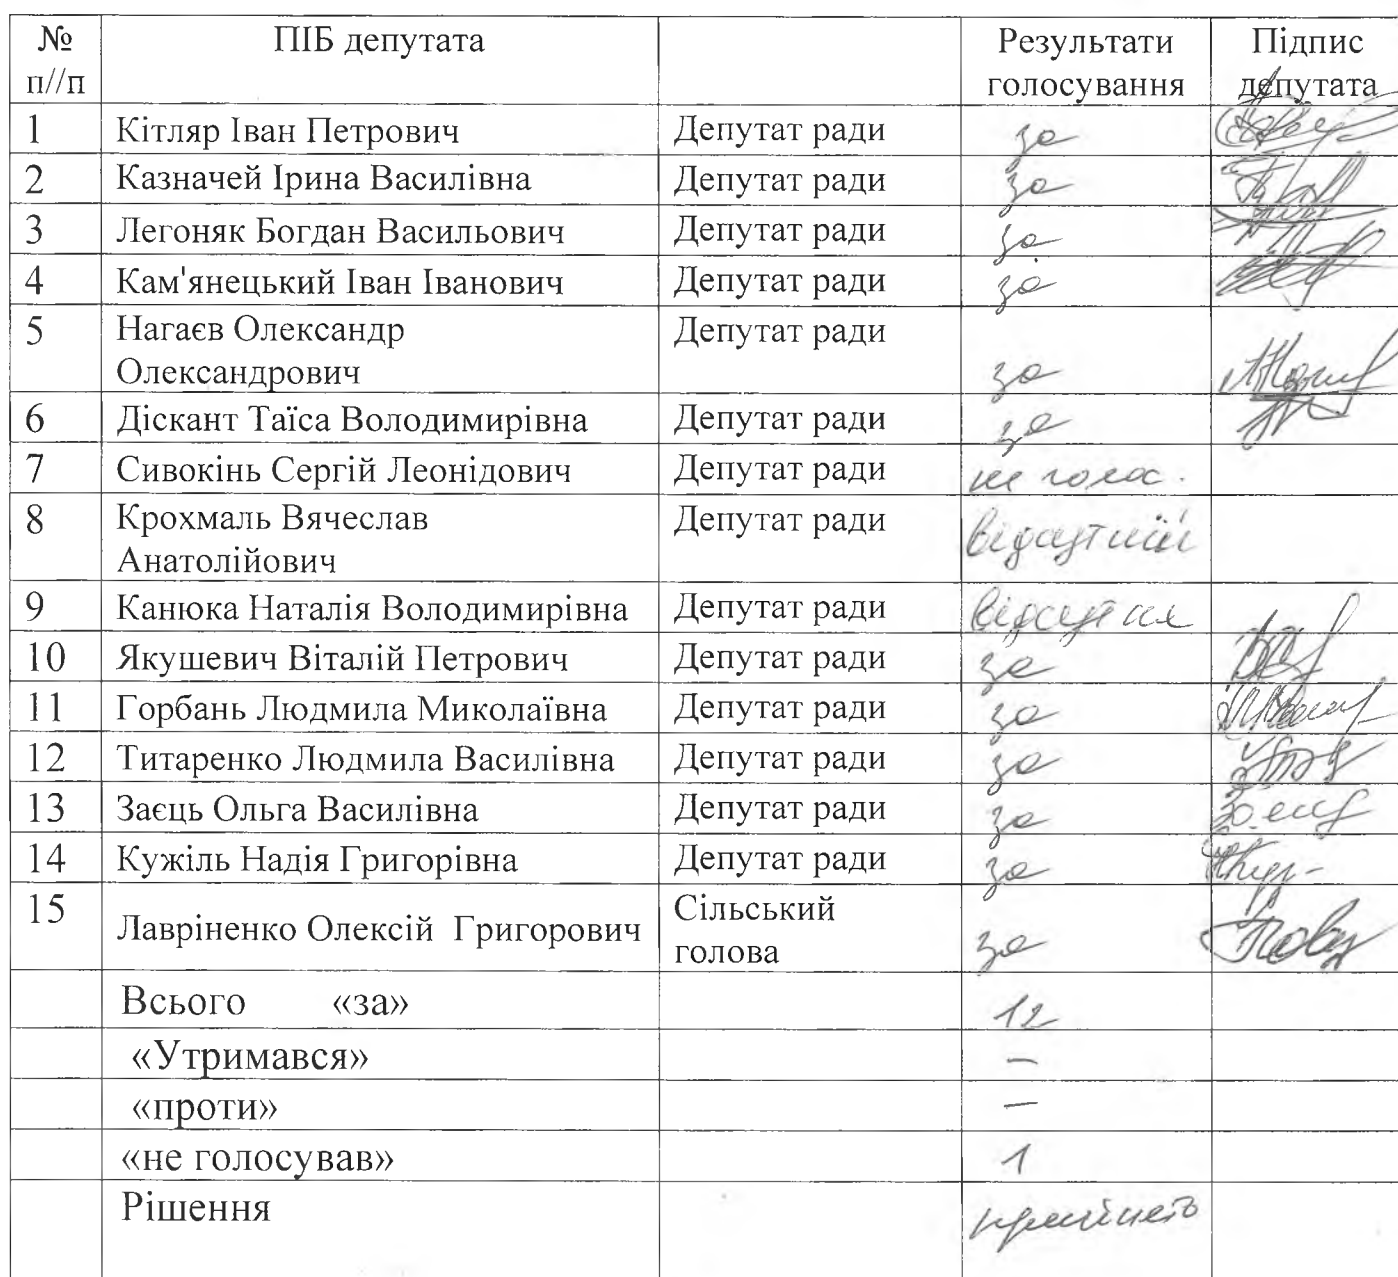 № п//п ПІБ депутата Результати голосування Підпис депутата
1 Кітляр Іван Петрович Депутат ради за
2 Казначей Ірина Василівна Депутат ради за
3 Легоняк Богдан Васильович Депутат ради за
4 Кам'янецький Іван Іванович Депутат ради за
5 Нагаєв Олександр Олександрович Депутат ради за
6 Діскант Таїса Володимирівна Депутат ради за
7 Сивокінь Сергій Леонідович Депутат ради не голос.
8 Крохмаль Вячеслав Анатолійович Депутат ради відсутній
9 Канюка Наталія Володимирівна Депутат ради відсутня
10 Якушевич Віталій Петрович Депутат ради за
11 Горбань Людмила Миколаївна Депутат ради за
12 Титаренко Людмила Василівна Депутат ради за
13 Заєць Ольга Василівна Депутат ради за
14 Кужіль Надія Григорівна Депутат ради за
15 Лавріненко Олексій Григорович Сільський голова за
Всього «за» 12
«Утримався» —
«проти» —
«не голосував» 1
Рішення